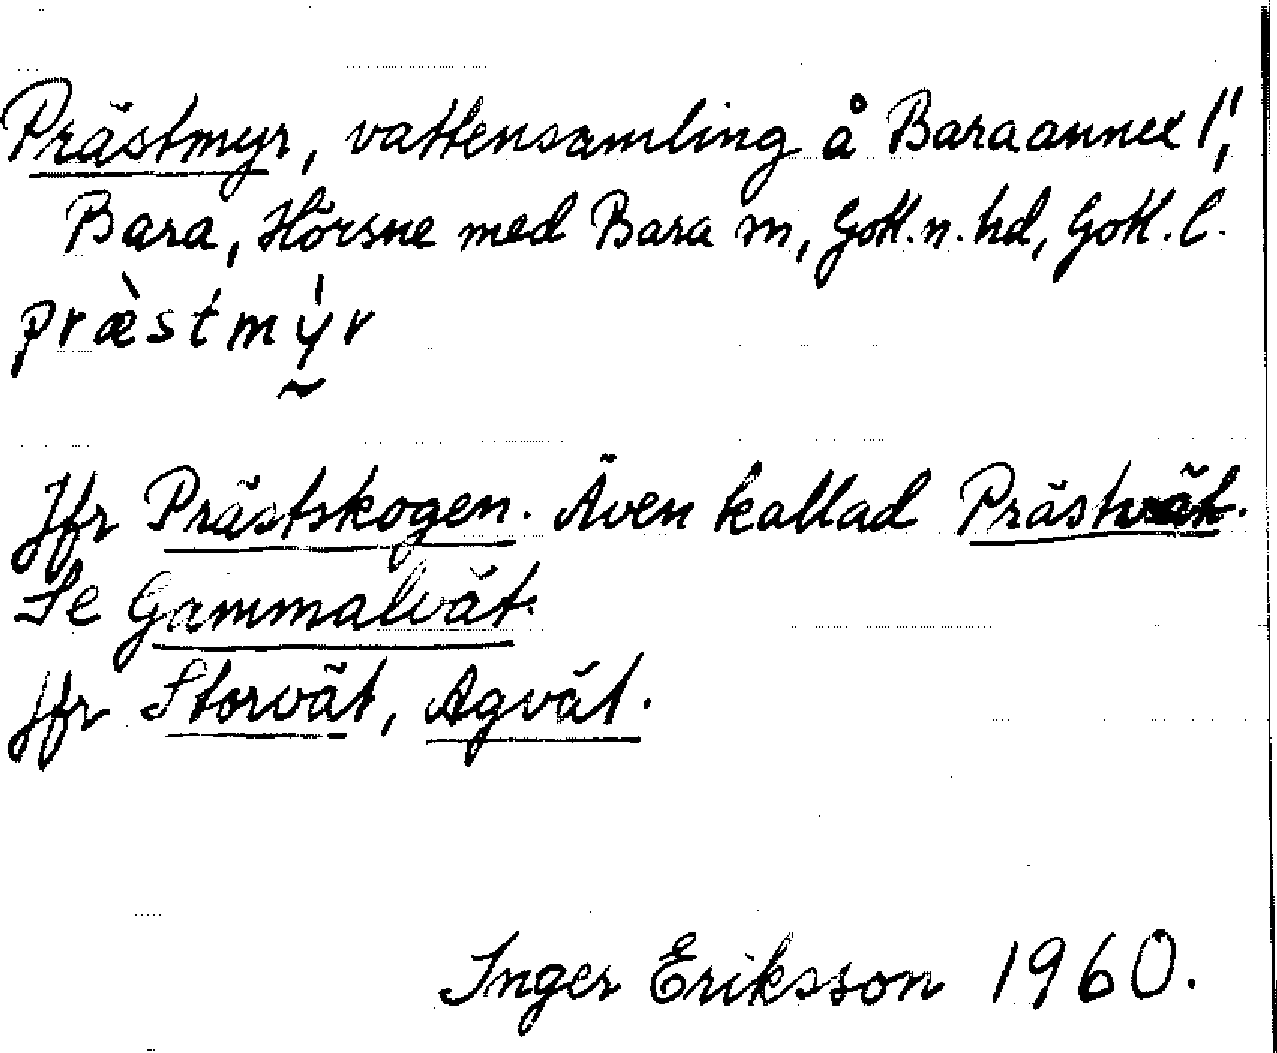 Prästmyr, vattensamling å Baraannex 1:1,
Bara, Hörsne med Bara sn, Gotl. n. hd, Gotl. l.
præ̀stmy̰̍r
Jfr Prästskogen. Även kallad Prästvät.
Se Gammalvät.
Jfr Storvät, Agvät.
Inger Eriksson 1960.